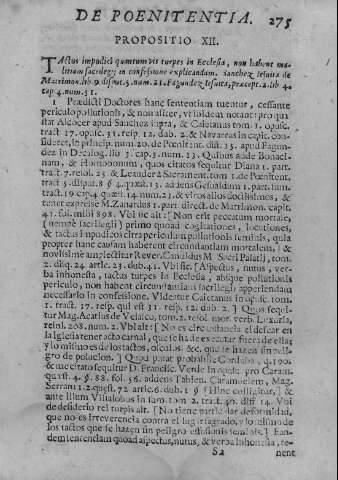 DE POENITENTIA. 275
PROPOSITIO XII.
TActus impudici quantumvis turpes in Ecclesia, non habent ma-
litiam sacrilegij in confessione explicandam. Sanchez Iesuita de
Matrimon. lib. 9. disput. 5. num. 21. Fagundez Iesuita, præcept. 2. lib 4.
cap 4. num. 31.
1 Prædicti Doctores hanc sententiam tuentur, cessante
periculo pollutionis, & non aliter, ut inde
Alcocer apud Sanchez supra, & Caietanus tom. 1. opusc.
tract 17. opusc. 31. resp. 12. dub. 2. & Navarrus in capit. con-
sideret, in princip. num. 20. de Pœnit. dist. apud Fagun-
dez in Decalog. lib 3. cap. 3. num. 23. Quibus adde Bonaci-
nam, & quos citatos sequitur Diana 1. part.
tract 7. resol. 23. & Leander à Sacrament. tom 1. de Pœnitent.
tract 5. disput. 8 §. 4. quæst. 13. addens 1. part. lum.
tract. 19. cap. 4. quæst. 14 num. 23. & viros alios doctissimos, &
tenet expresè M. Zanardus 1. part. direct. de Matrimon. capit.
41. fol. mihi 898. Vbi sic ait: [ Non erit peccatum mortale,
(nempè sacrilegij) primo quoad cogitationes, locutiones,
& tactus impudicos citra periculum pollutionis seminis, quia
propter hanc causam haberent circunstantiam mortalem, ] &
novissimè amplectitur Rever. Candidus M. Sacri Palatij, tom.
2. disq. 24. artic. 23. dub. 41. Vbi sic. [ Aspectus, nutus, ver-
ba inhonesta, tactus turpes in Ecclesia, absque pollutionis
periculo, non habent circunstantiam sacrilegij apperiendam
necessario in confessione. Videntur Caietanus in opusc. tom.
1. tract. 17. resp. qui est 31. resp. 12. dub. 2. ] Quos sequi-
tur Mag. Acatius de Velasco, tom. 2. resol. mor. verb. Luxuria,
resol. 208. num. 2. Vbi ait: [ No es circunstancia el desear en
la Iglesia tener acto carnal, que se ha de executar fuera de ella;
y lo mismo es de los tactos, osculos, &c. que se hazen sin pelig-
gro de polucion. ] Quod putat probabile Cordoba, q. 190.
& me citato sequitur D. Francisc. Verde in opusc pro Caram.
quæst. 4. §. 88. fol. 56. addens Tablen. Caramuelem, Mag.
Serram 1. 2. quæst. 72. artic. 6. dub. 1. § [ Hinc colligitur, ] &
ante illum Villalobos in sum. tom 2. tract. 40. diff 14. Vbi
de desiderio rei turpis ait. [ No tiene particular deformidad,
que no es irreverencia contra el lugar sagrado, y lo mismo de
los tactos que se hazen sin peligro effusionis seminis. ] Ean-
dem sententiam quoad aspectus, nutus, & verba inhonesta, te-
S2 nent